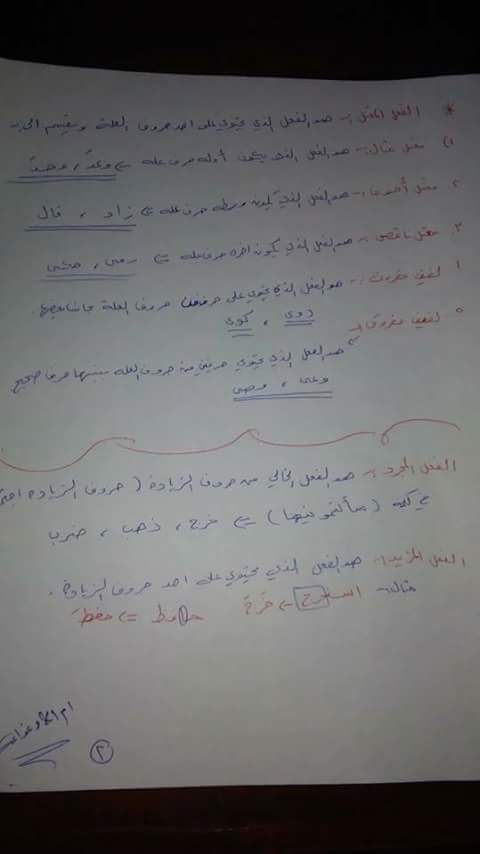 * الفعل المعتل :- هو الفعل الذي يحتوي على احد حروف العلة وينقسم الى :-
١) معتل مثال :- هو الفعل الذي يكون أوله حرف عله => وعد ، وصف
٢. معتل أجوف :- هو الفعل الذي يكون وسطه حرف عله => زاد ، قال
٣. معتل ناقص :- هو الفعل الذي يكون اخره حرف عله => رمى ، مشى
٤ لفيف مقرون :- هو الفعل الذي يحتوي على حرفين حروف العلة
روى ، كوى
٥ لفيف مفروق :-
هو الفعل الذي يحتوي حرفين من حروف العله بينهما حرف صحيح
وعى ، وصى
الفعل المجرد :- هو الفعل الخالي من حروف الزيادة ( حروف الزيادة
في كلمة (سألتمونيها) => خرج ، ذهب ، ضرب
الفعل المزيد :- هو الفعل الذي يحتوي على احد حروف الزيادة .
مثال :- استخرج => خرج حافظ => حفظ
٢